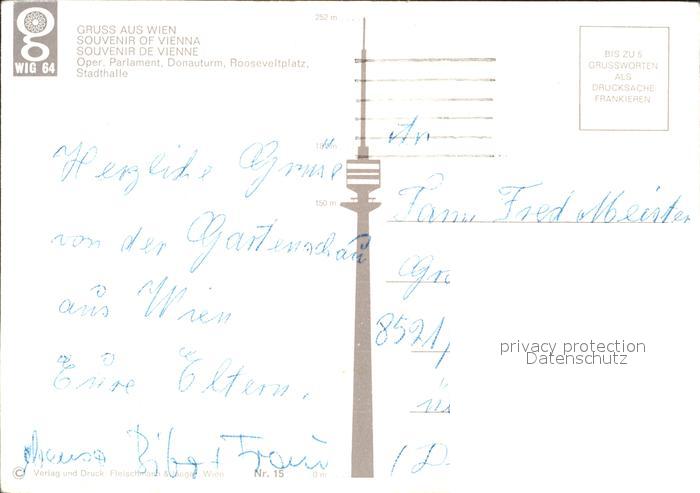 WIG 64
GRUSS AUS WIEN
SOUVENIR OF VIENNA
SOUVENIR DE VIENNE
Oper, Parlament, Donauturm, Rooseveltplatz,
Stadthalle
252 m
BIS ZU 5
GRUSSWORTEN
ALS
DRUCKSACHE
FRANKIEREN
150 m
An
Fam. Fred Meister
8521,
Herzliche Grüsse
von der Gartenschau
aus Wien
Eure Eltern.
privacy protection
Datenschutz
(D
© Verlag und Druck Wien
Nr. 15
0 m